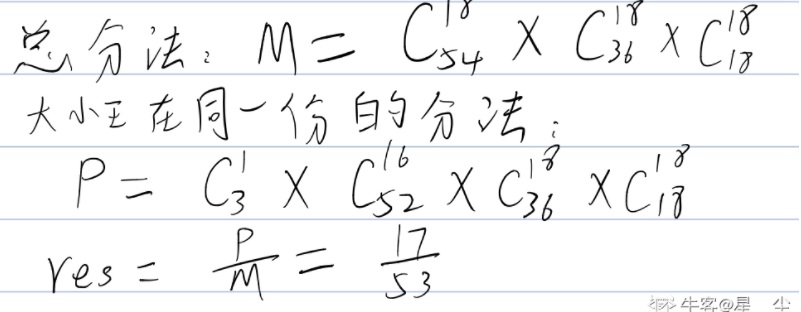 总分法: M = C_{54}^{18} × C_{36}^{18} × C_{18}^{18}
大小王在同一份的分法:
P = C_3^1 × C_{52}^{16} × C_{36}^{18} × C_{18}^{18}
res = \frac{P}{M} = \frac{17}{53}
牛客@星 尘